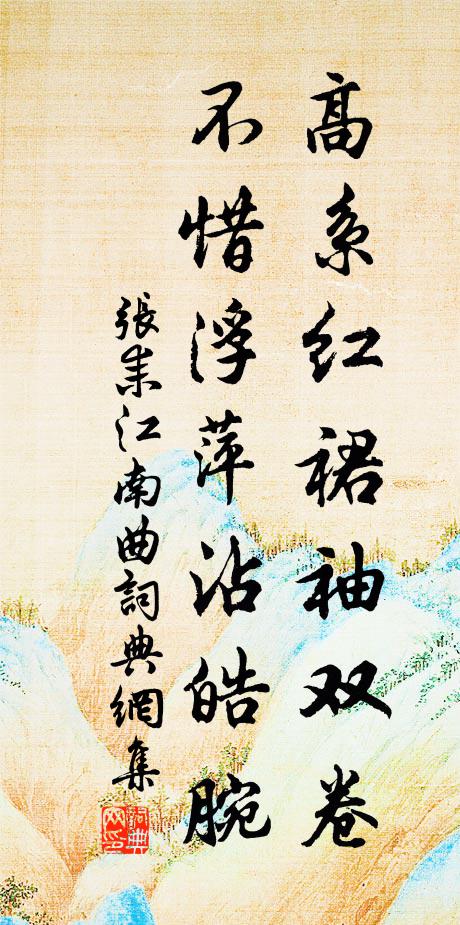 高系红裙袖双卷
不惜浮萍沾皓腕
張耒江南曲詞典網集
詞典網印